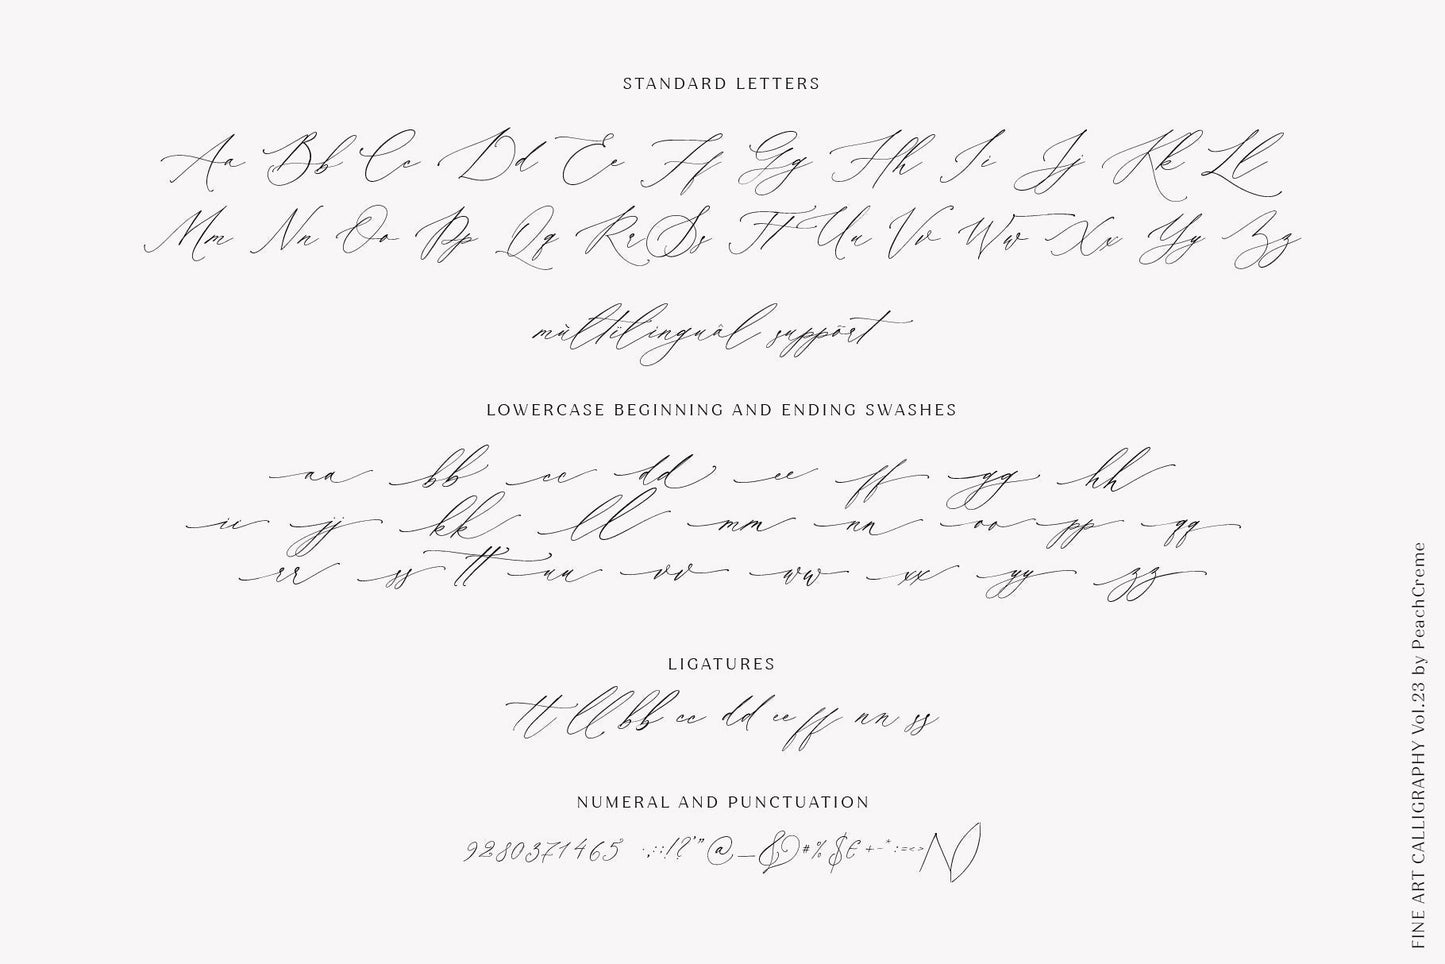 STANDARD LETTERS
Aa Bb Cc Dd Ee Ff Gg Hh Ii Jj Kk Ll
Mm Nn Oo Pp Qq Rr Ss Tt Uu Vv Ww Xx Yy Zz
mùltïlinguâl suppört
LOWERCASE BEGINNING AND ENDING SWASHES
aa bb cc dd ee ff gg hh
ii jj kk ll mm nn oo pp qq
rr ss tt uu vv ww xx yy zz
LIGATURES
tt ll bb cc dd ee ff nn ss
NUMERAL AND PUNCTUATION
9280371465 .,:;!?'"@_&#%$€+-*:=<>
FINE ART CALLIGRAPHY Vol.23 by PeachCreme